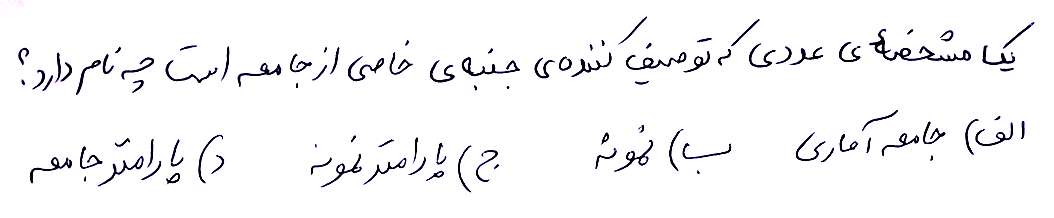 یک مشخصهٔ ی عددی که توصیف کننده‌ی جنبه‌ی خاصی از جامعه است چه نام دارد؟
الف) جامعه آماری ب) نمونه ج) پارامتر نمونه د) پارامتر جامعه